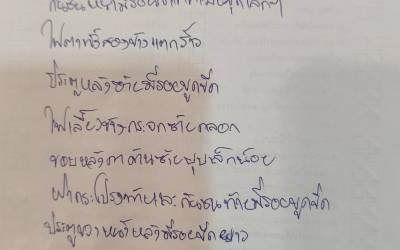 กันชนหน้ามีรอย
ไฟตาหรี่สองข้างแตกร้าว
ประตูหลังซ้ายมีรอยขูดขีด
ไฟเลี้ยวข้างกระจกซ้ายถลอก
ขอบหลังคาด้านซ้ายบุบเล็กน้อย
ฝากระโปรงท้ายและกันชนท้ายมีรอยขูดขีด
ประตูขวาหน้าหลังมีรอยขีดยาว